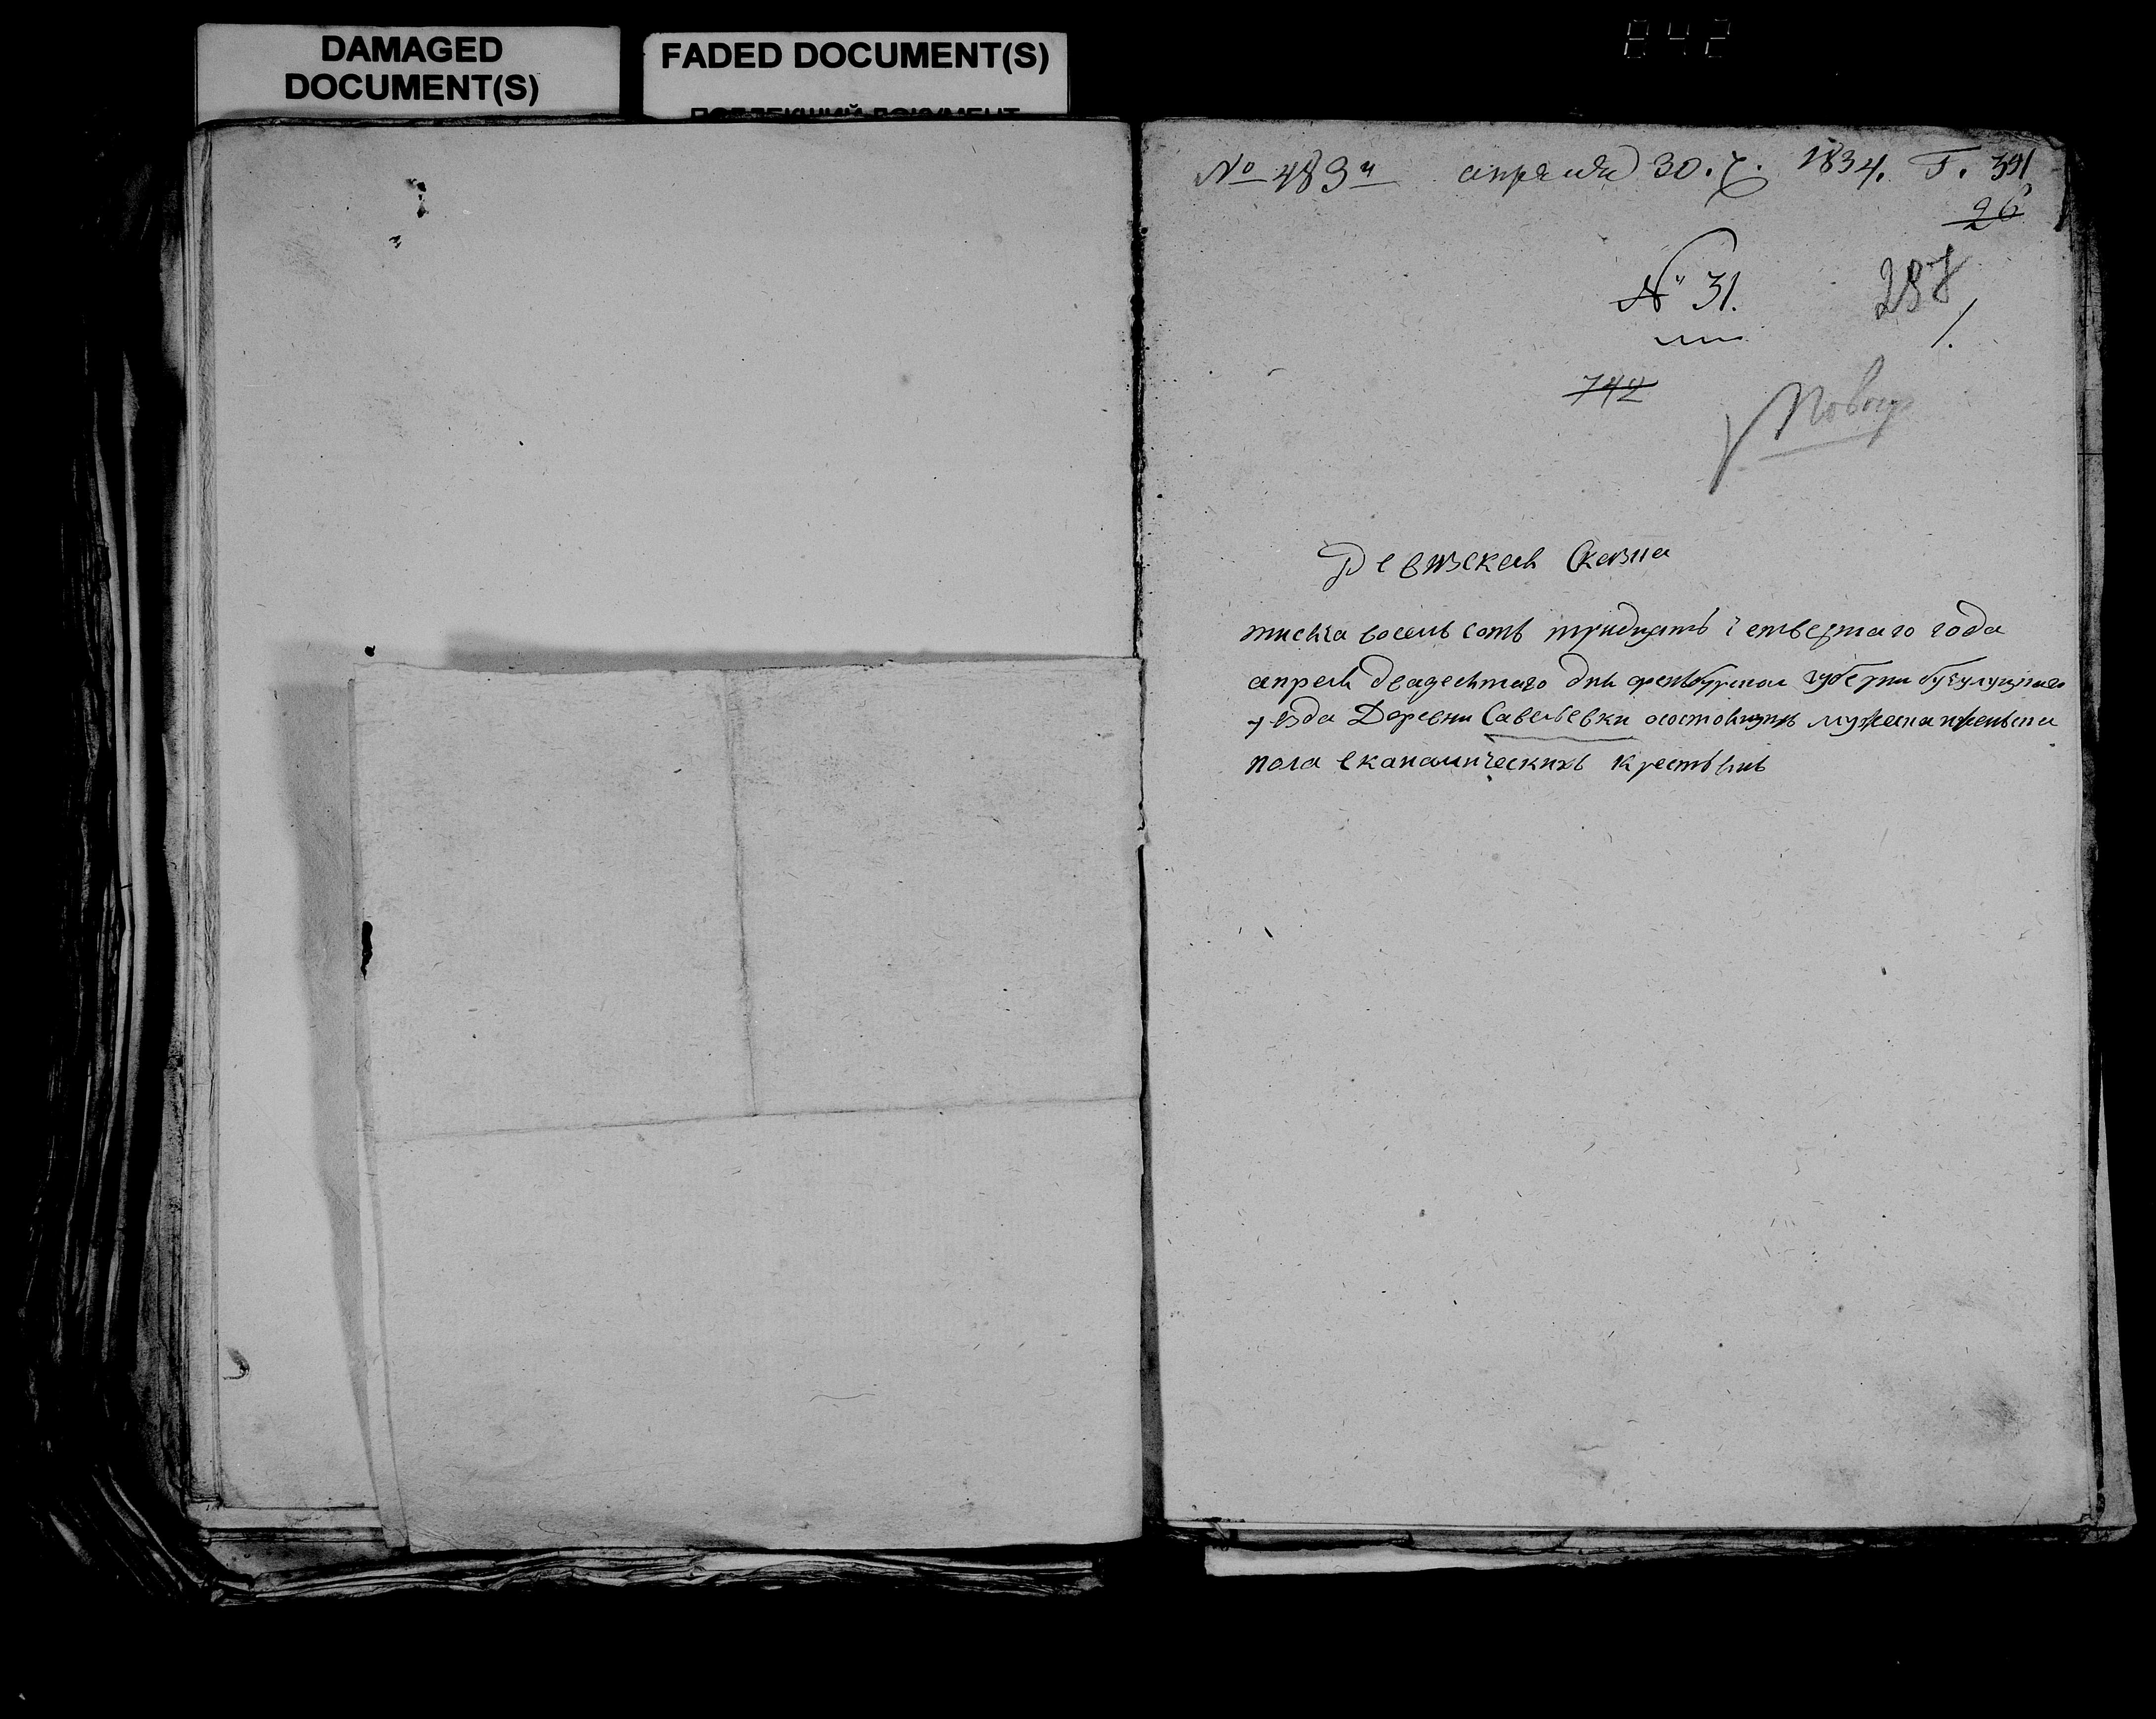 DAMAGED
DOCUMENT(S)
FADED DOCUMENT(S)
842
№ 483й апреля 30. ч. 1834. Г. 391
26
№ 31.
287
1.
742
Ревизская Сказка
тысяча восемь сотъ тридцать четвертаго года
апреля двадесятаго дня оренбурской губерни бугулуцкаго
уезда Деревни Савельевки осостоящихъ мужеска иженьска
пола еканамическихъ крестьянъ